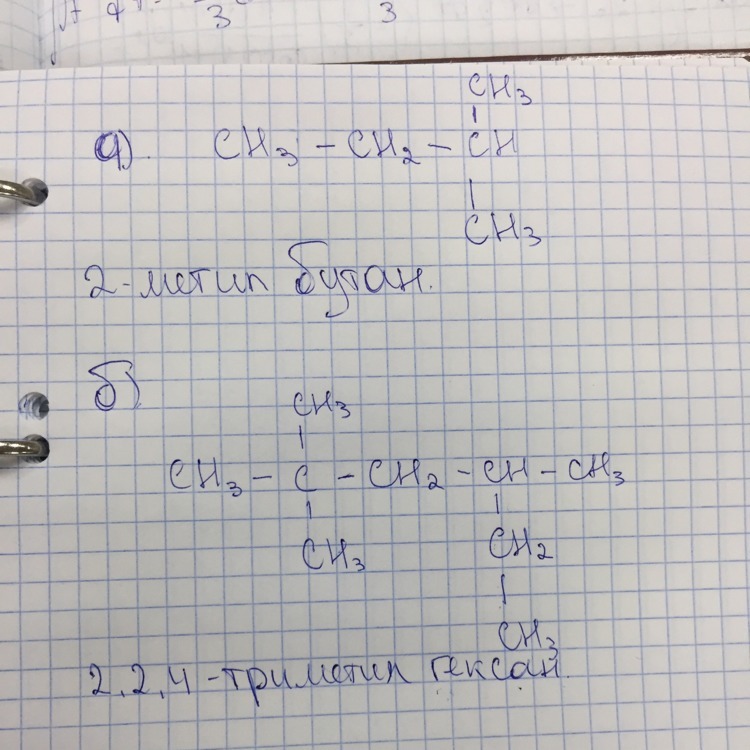 CH3
а). CH3 - CH2 - CH
CH3
2-метил бутан.
б)
CH3
CH3 - C - CH2 - CH - CH3
CH3 CH2
CH3
2,2,4-триметил гексан.